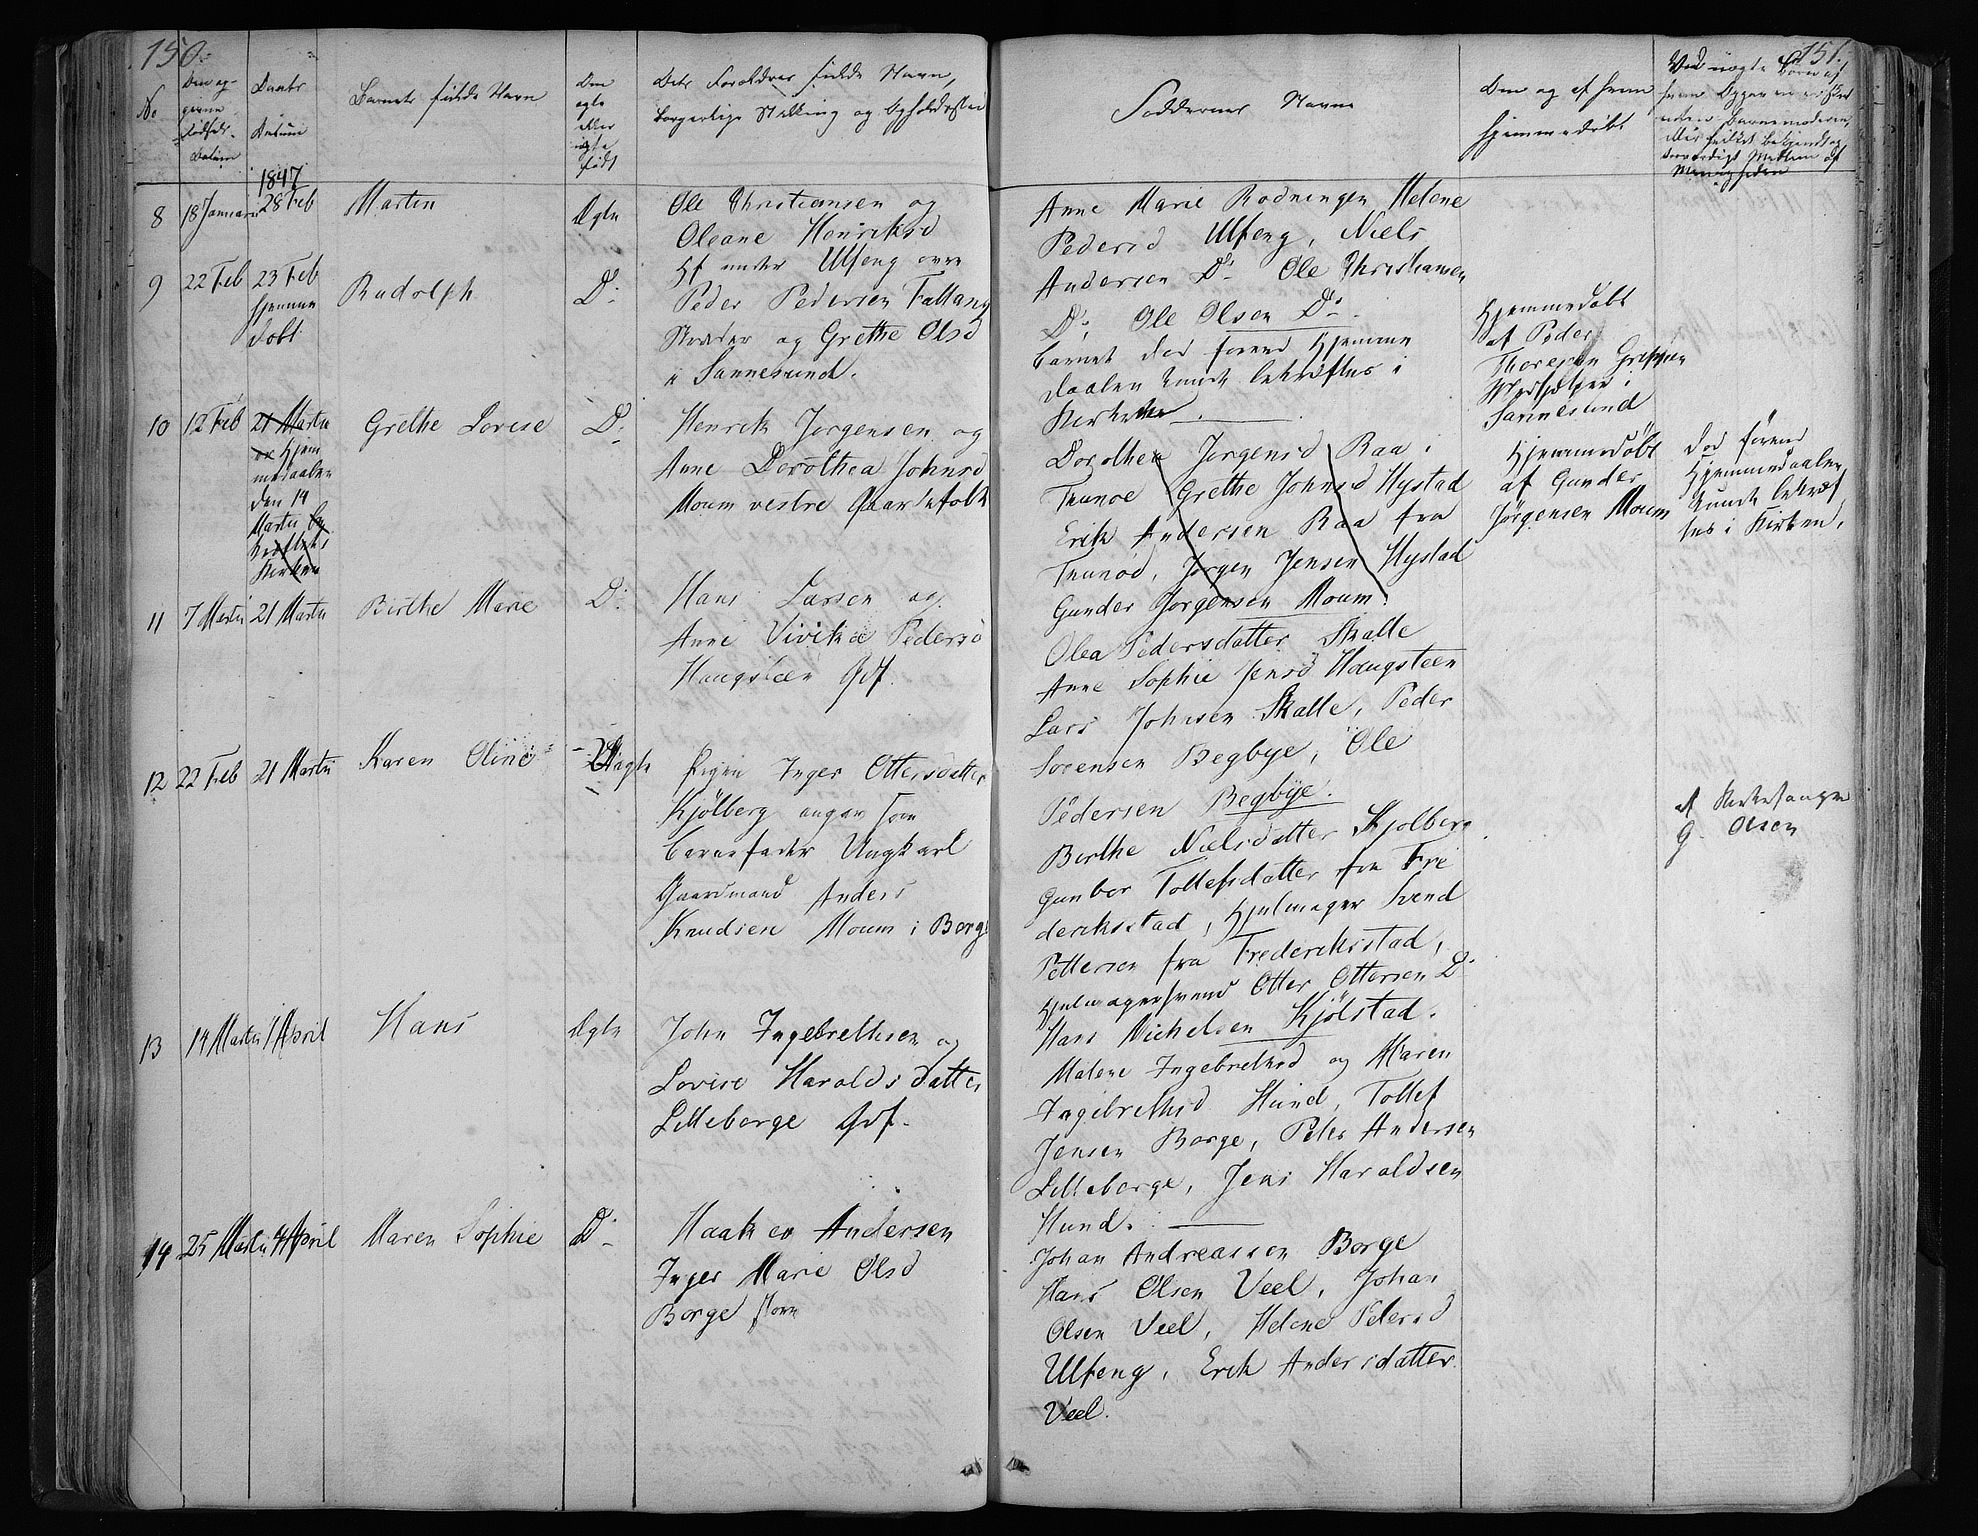 150.
No
Den og-
Daabs
Datum
Datum
Barnets fulde Navn
Den
ægte
eller
uægte
født
Dets Forældres fulde Navn,
borgerlige Stilling og Opholdssted
1847
8 18 Januar 28 Feb Martin Ægte Ole Christiansen og
Oleane Henriksd
Hf under Ulfeng øvre
9 22 Feb 23 Feb Rudolph D: Peder Pedersen
hjemme
døbt
og Grethe Olsd
i Sannesund.
10 12 Feb 21 Marts Grethe Lovise D: Henrik Jørgensen og
Hjem
medaaben
den 14
Marts
Kirken
Anne Dorothea Johnsd
Moum vestre
11 7 Marts 21 Marts Birthe Marie D: Hans Larsen og
Anne Vivika Pedersd
Haugsteen Gdf.
12 22 Feb 21 Marts Karen Oline Uægte Pigen Inger Ottersdatter
Kjølberg angav som
Barnefader Ungkarl
Gaardmand Anders
Knudsen Moum i Borge
13 14 Marts April Hans Ægte John Ingebrethsen og
Lovise Haraldsdatter
Lilleborge Gdf.
14 25 Marts 4 April Maren Sophie D: Haaken Andersen
Inger Marie Olsd
Borge store
151.
Faddernes Navne
Om og af hvem
hjemmedøbt
Anne Marie Rødningen, Helene
Pedersd Ulfeng, Niels
Andersen D: Ole Christiansen
D: Ole Olsen D:
Barnet død førend Hjemme
daaben kunde bekræftes i
Kirken.
Hjemmedøbt
af Peder
Medhjelper i
Sannesund
Dorothea Jørgensd Raa i
Tunøe Grethe Johnsd Hystad
Erik Andersen Raa fra
Tunøe, Jørgen Jensen Hystad
Gunder Jørgensen Moum.
Hjemmedøbt
af Gunder
Jørgensen Moum
Død førend
Hjemmedaaben
kunde bekræf
tes i Kirken.
Olea Pedersdatter Skalle
Anne Sophie Jensd Haugsteen
Lars Johnsen Skalle, Peder
Sørensen Begbye, Ole
Pedersen Begbye.
Berthe Nielsdatter Kjølberg
Gunbor Tollefsdatter fra Fre
deriksstad, Hjulmager Svend
Pettersen fra Frederiksstad,
Hjulmagersvend Otter Ottersen D:
Hans Michelsen Kjølstad.
af Kirkesanger
G. Olsen
Malene Ingebrethsd og Maren
Ingebrethsd Hund, Tollef
Jensen Borge, Peter Andersen
Lilleborge, Jens Haraldsen
Hund.
Johan Andreassen Borge
Hans Olsen Veel, Johan
Olsen Veel, Helene Pedersd
Ulfeng, Erik Andersdatter
Veel.